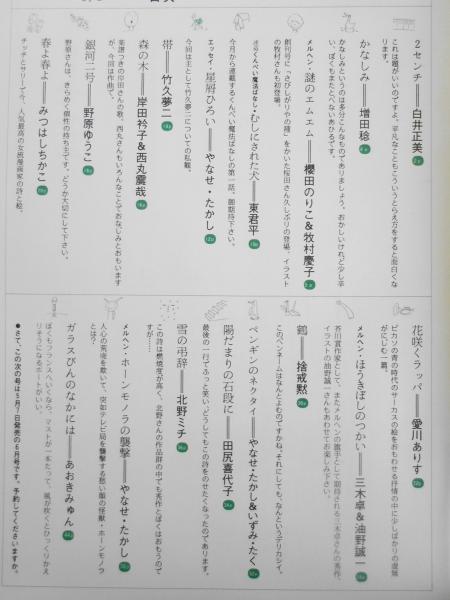 2センチ━━白井正美
これは題がいいのですよ。平凡なこともこういうとらえ方をすると面白くな
ります。
かなしみ━━増田稔
かなしみというのは多分こんなものでありましょう。おかしいけれど少し辛
い、ぼくもまたとべないあひるです。
メルヘン・謎のエムエム━━櫻田のりこ&牧村慶子
創刊号に「さびしがりやの種」をかいた桜田さん久しぶりの登場、イラスト
の牧村さんも初登場。
くんぺい魔法ばなし・むしにされた犬━━東君平
今月から連載するくんぺい魔法ばなしの第一話。御期待下さい。
エッセイ・星屑ひろい━━やなせ・たかし
今回は主として竹久夢二についての私観。
帯━━竹久夢二
森の木━━岸田衿子&西丸震哉
楽譜つきの岸田さんの歌、西丸さんもいろんなことでおなじみとおもいます
が、今回は作曲で。
銀河二号━━野原ゆうこ
野原さんは、きらめく個性の持ち主です。どうか大切にして下さい。
春よ春よ━━みつはしちかこ
チッチとサリーで今、人気最高の女流漫画家の詩と絵。
花咲くラッパ━━愛川ありす
ピカソの青の時代のサーカスの絵をおもわせる抒情の中に少しばかりの虚無
がにじむ一篇。
メルヘン・ほうきぼしのつかい━━三木卓&油野誠一
芥川賞作家として、またメルヘンの旗手として期待される三木卓さんの秀作、
イラストの油野誠一さんもあわせてお楽しみ下さい。
鶴━━捨戒黙
このペンネームはなんとよむのですかね。それにしても、なんというデリカシィ。
ペンギンのネクタイ━━やなせ・たかし&いずみ・たく
陽だまりの石段に━━田尻喜代子
最後の一行であっと笑い、どうしてもこの詩をのせたくなったのであります。
雪の弔辞━━北野ミチ
この詩は燃焼度が高く、北野さんの作品群の中でも秀作とぼくはおもうので
すが……
メルヘン・ホーンモノラの襲撃━━やなせ・たかし
人心の荒廃を歎いて、突如テレビ局を襲撃する悲い顔の怪獣・ホーンモノラ
とは?
ガラスびんのなかには━━あおきみゅん
ぼくもフランスへいくなら、マストが一本たって、風が吹くとひっくりかえ
りそうになるボートがいい。
●さて、この次の号は5月7日発売の6月号です。予約してくださいますか。